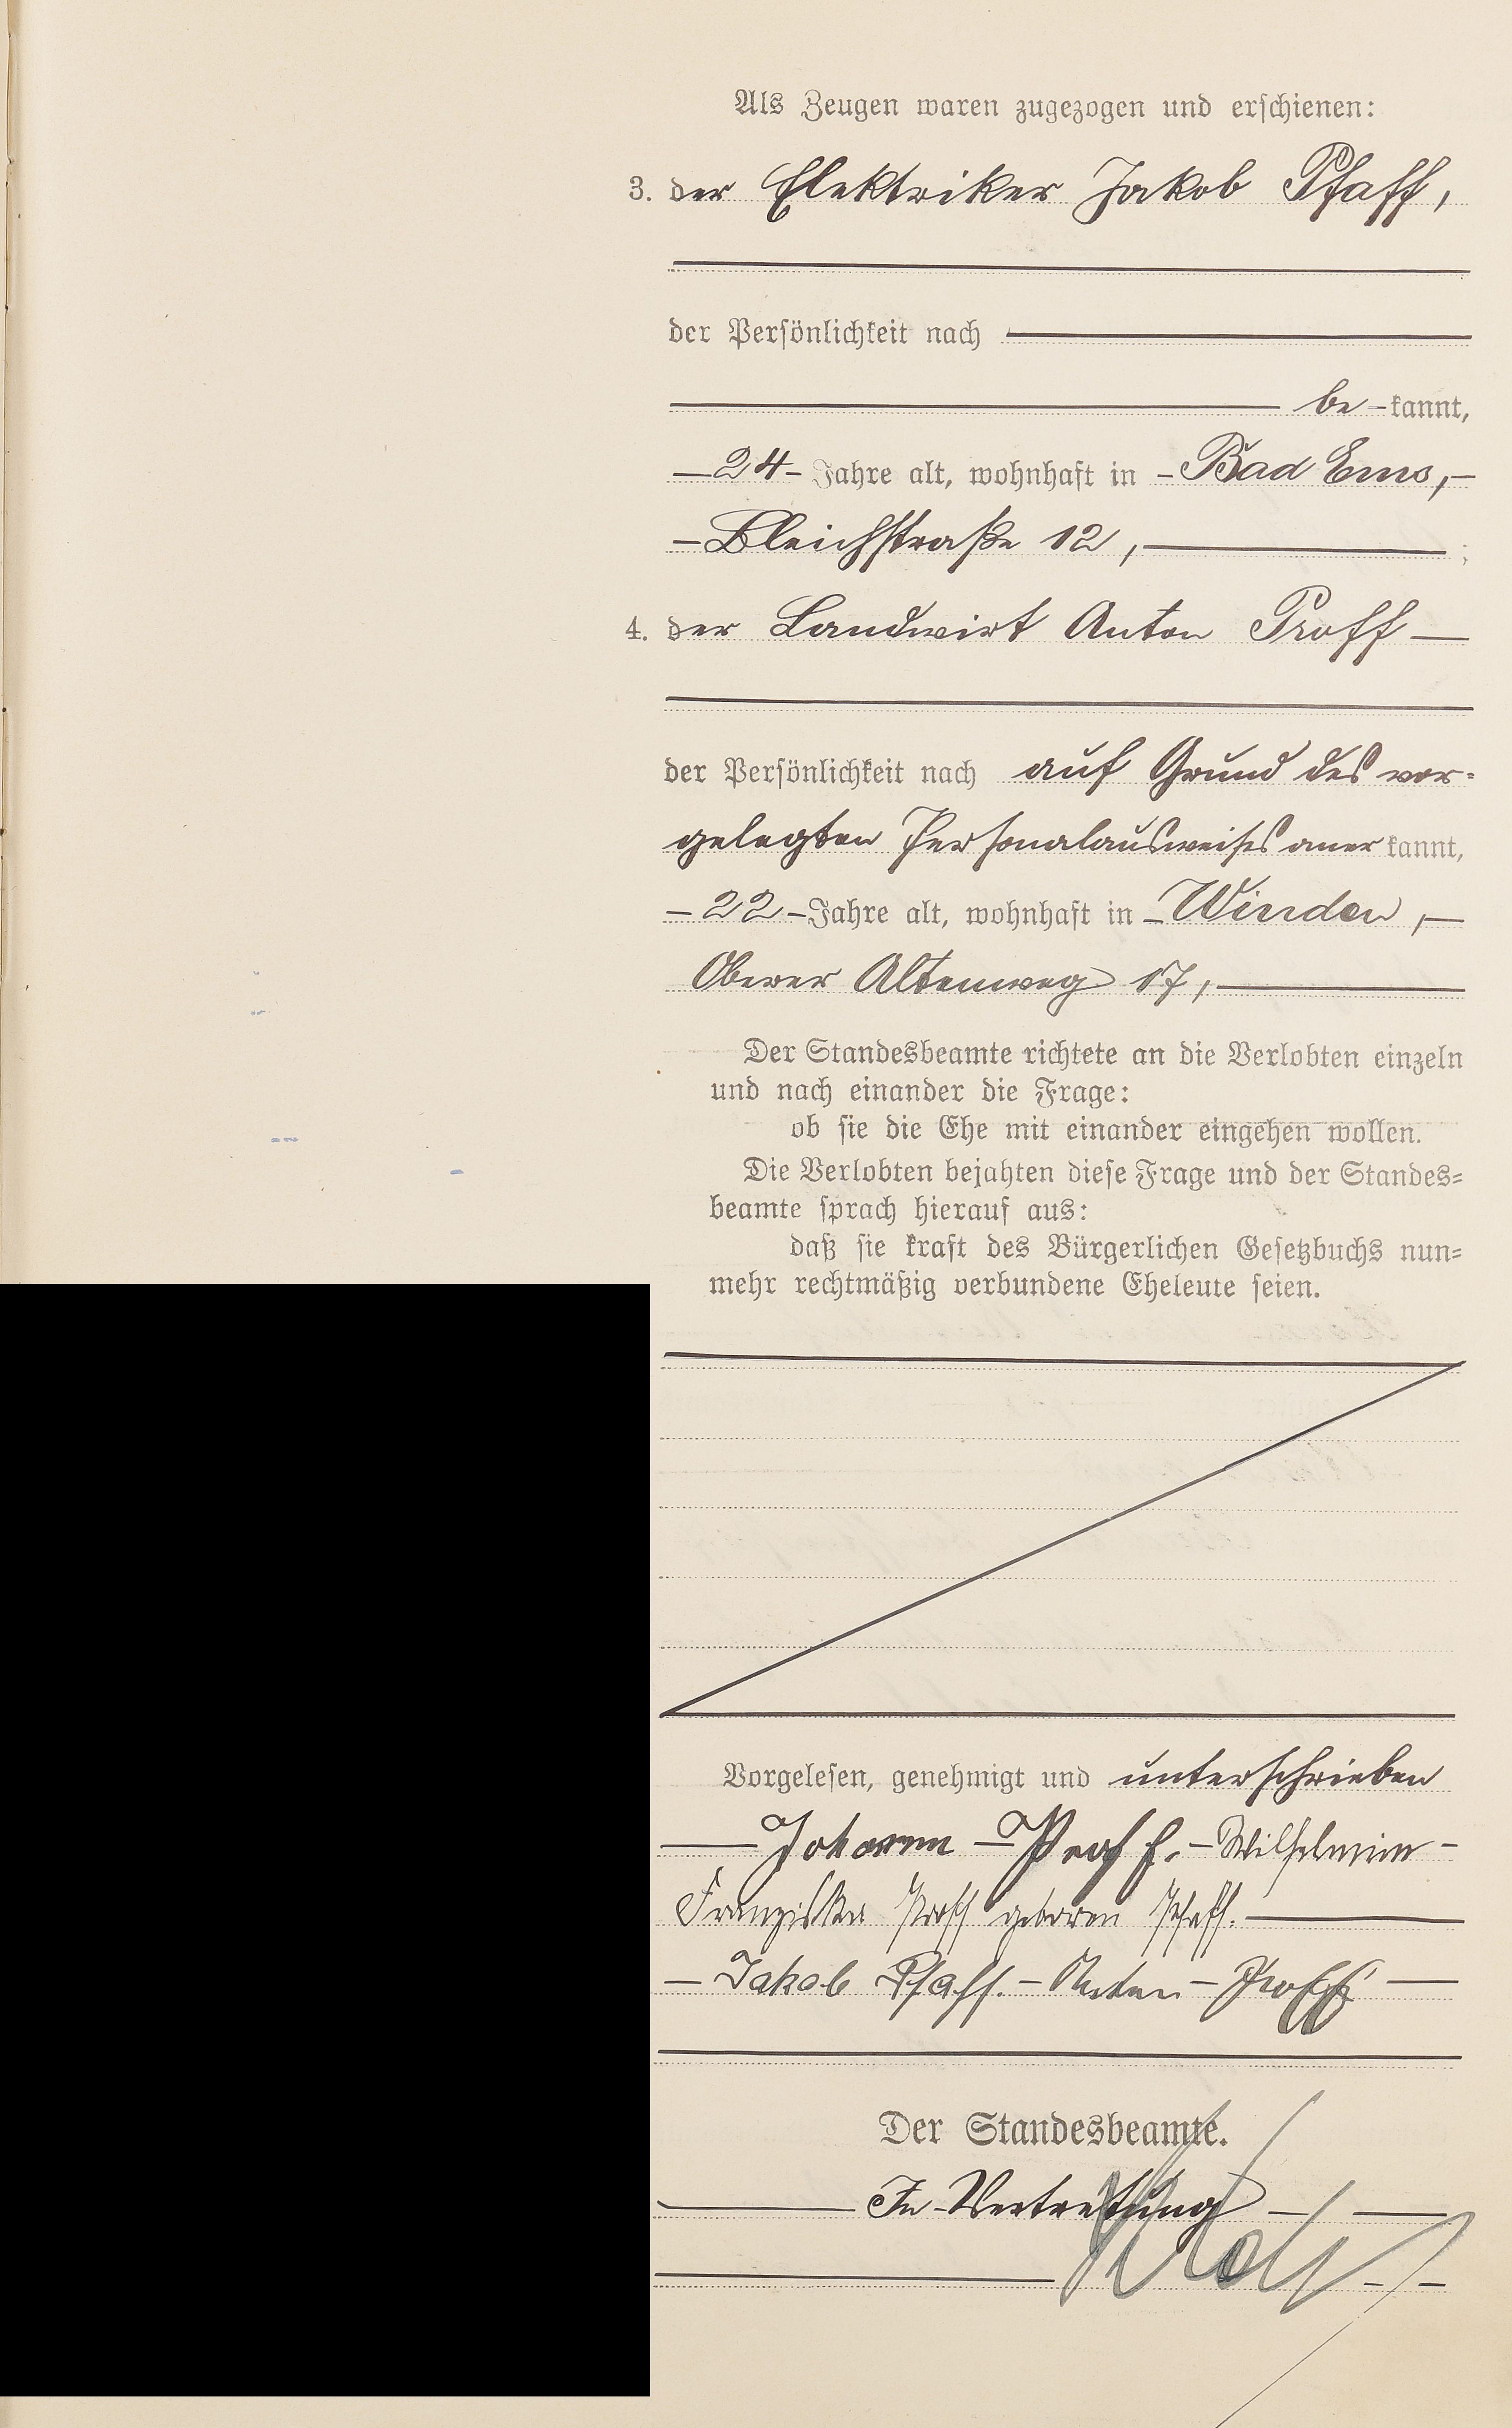 Als Zeugen waren zugezogen und erschienen:
3. der Elektriker Jakob Pfaff,
der Persönlichkeit nach
be-kannt,
-24- Jahre alt, wohnhaft in - Bad Ems, -
- Bleichstraße 12, ;
4. der Landwirt Anton Proff
der Persönlichkeit nach auf Grund des vor-
gelegten Personalausweises anerkannt,
-22- Jahre alt, wohnhaft in - Winden, -
Oberer Altenweg 17,
Der Standesbeamte richtete an die Verlobten einzeln
und nach einander die Frage:
ob sie die Ehe mit einander eingehen wollen.
Die Verlobten bejahten diese Frage und der Standes-
beamte sprach hierauf aus:
daß sie kraft des Bürgerlichen Gesetzbuchs nun-
mehr rechtmäßig verbundene Eheleute seien.
Vorgelesen, genehmigt und unterschrieben
- Johann - Proff. - Wilhelmine -
Franziska Proff geboren Pfaff.
- Jakob Pfaff. - Anton - Proff -
Der Standesbeamte.
In Vertretung